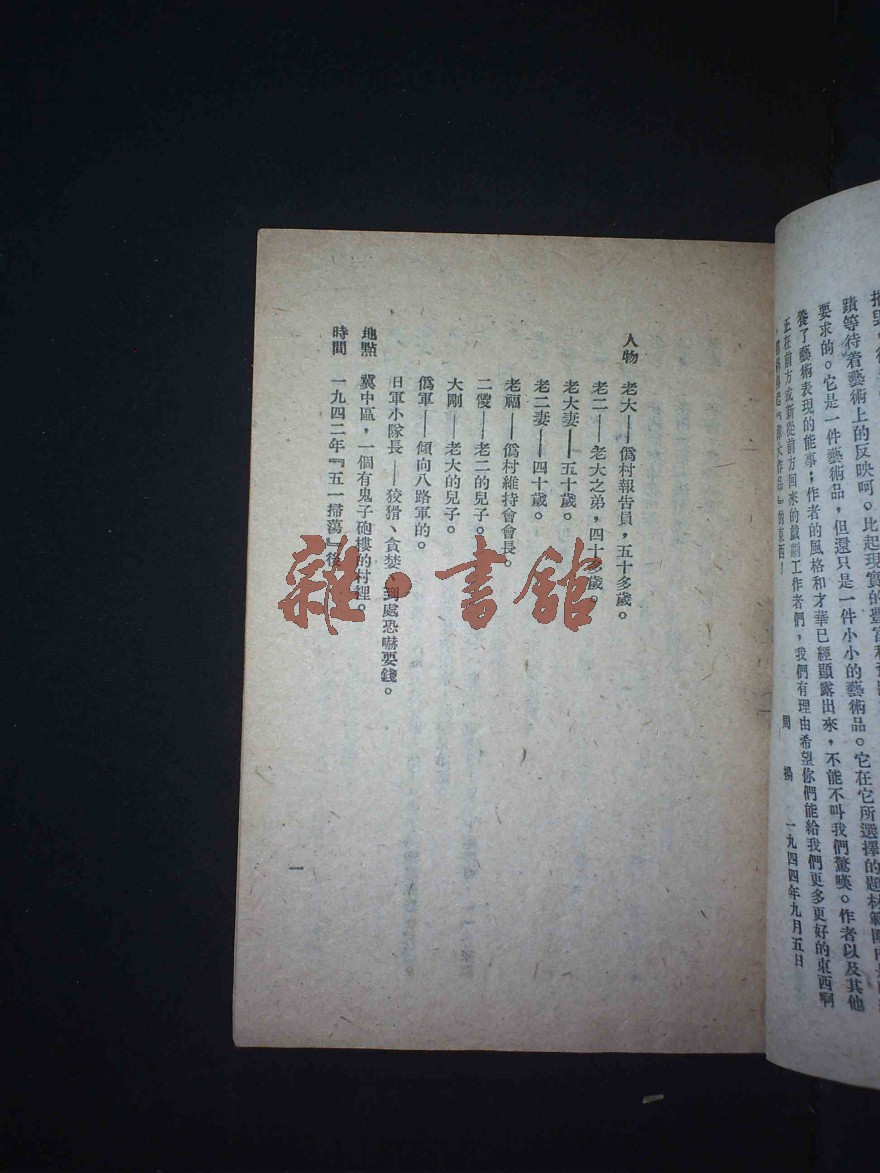 要求的。它是一件藝術品，但還只是一件小小的藝術品。它在它所選擇的題材範圍內
養了藝術表現的能事；作者的風格和才華已經顯露出來，不能不叫我們驚嘆。作者以及其他
正在前方或新從前方回來的戲劇工作者們，我們有理由希望你們能給我們更多更好的東西啊
周揚 一九四四年九月五日
人物 老大——僞村報告員，五十多歲。
老二——老大之弟，四十多歲。
老大妻——五十歲。
老二妻——四十歲。
老福——僞村維持會會長。
二傻——老二的兒子。
大剛——老大的兒子。
僞軍——傾向八路軍的。
日軍小隊長——狡猾、貪婪、到處恐嚇要錢。
地點 冀中區，一個有鬼子砲樓的村裡。
時間 一九四二年『五一掃蕩』後
一
雜·書館